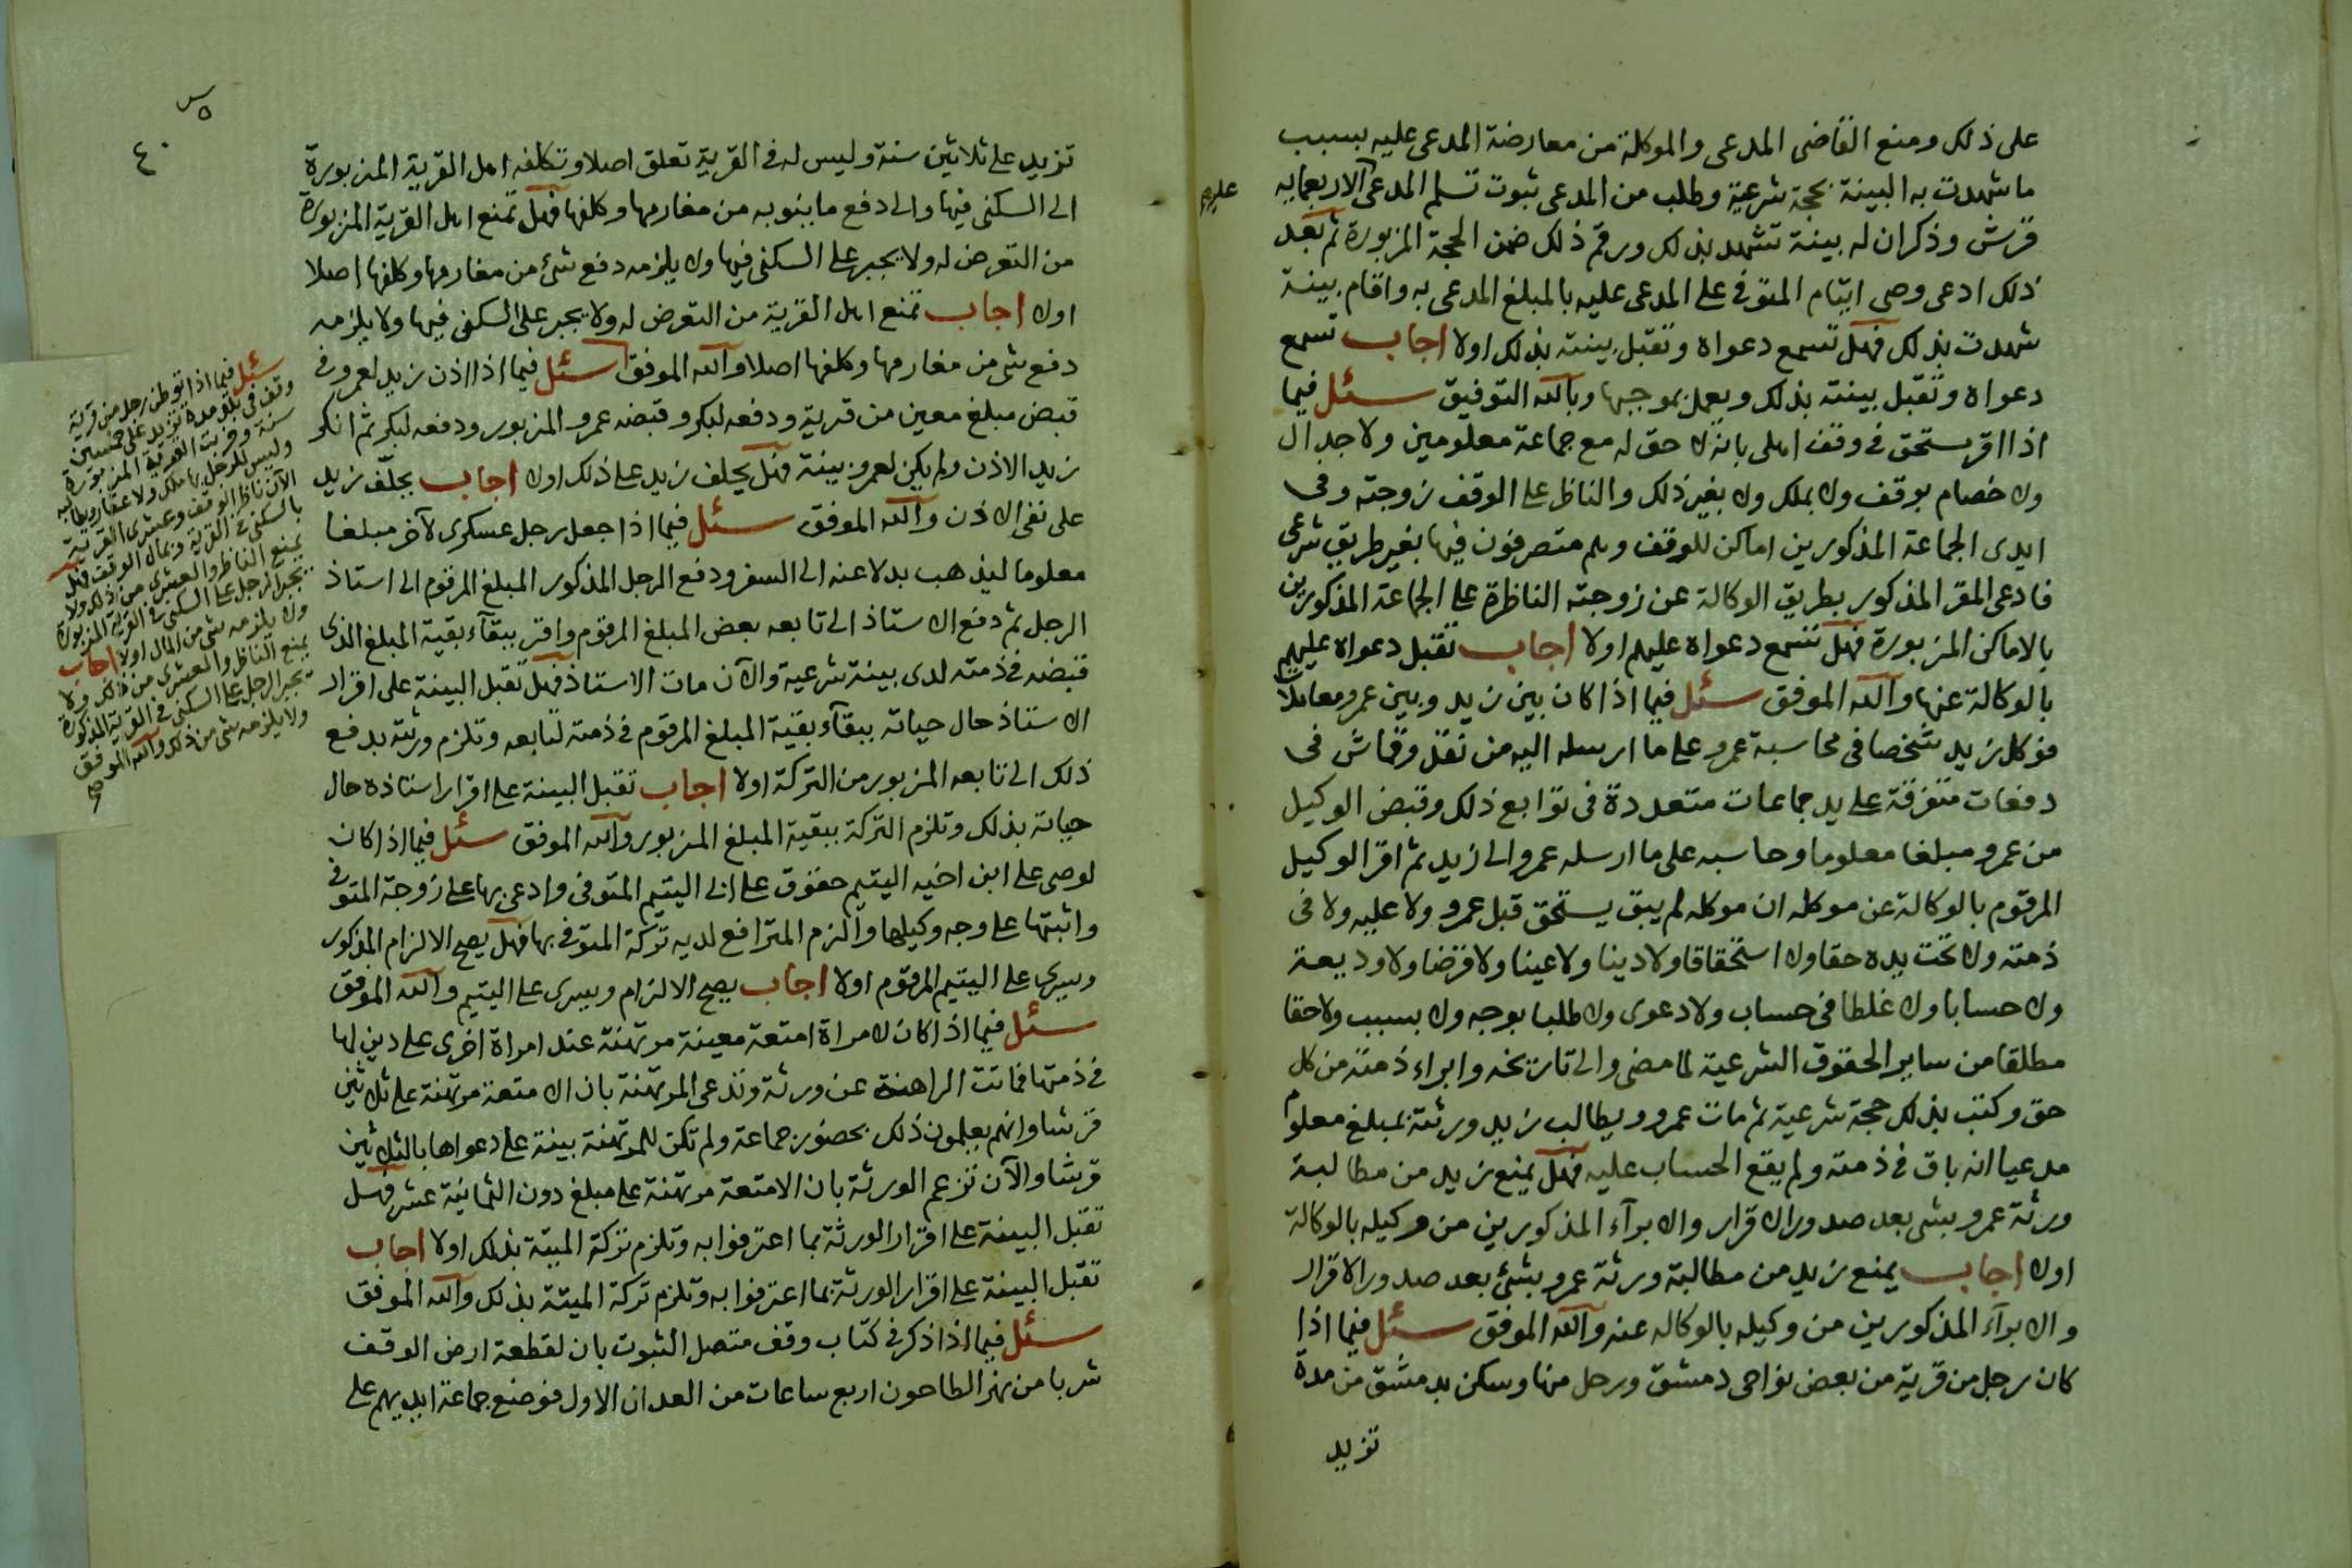 على ذلك ومنع القاضى المدعى والموكلة من معارضة المدعى عليه بسبب
ما شهدت به البينة بحجة شرعية وطلب من المدعى ثبوت تسلم المدعى الاربعمايه
قرش وذكر ان له بينة تشهد بذلك ورقم ذلك ضمن الحجة المزبورة ثم بعد
ذلك ادعى وصى ايتام المتوفى على المدعى عليه بالمبلغ المدعى به واقام بينة
شهدت بذلك فهل تسمع دعواه وتقبل بينته بذلك اولا اجاب تسمع
دعواه وتقبل بينته بذلك ويعمل بموجبها وبالله التوفيق سئل فيما
اذا اقر مستحق فى وقف اهلى بانه لا حق له مع جماعة معلومين ولا جدال
ولا خصام بوقف ولا بملك ولا بغير ذلك والناظر على الوقف زوجته وفى
ايدى الجماعة المذكورين اماكن للوقف وهم متصرفون فيها بغير طريق شرعى
فادعى المقر المذكور بطريق الوكالة عن زوجته الناظرة على الجماعة المذكورين
بالاماكن المزبورة فهل تسمع دعواه عليهم اولا اجاب تقبل دعواه عليهم
بالوكالة عنها والله الموفق سئل فيما اذا كان بين زيد وبين عمرو معاملة
فوكل زيد شخصا فى محاسبة عمرو على ما ارسله اليه من نقد وقماش فى
دفعات متفرقة على يد جماعات متعددة فى توابع ذلك وقبض الوكيل
من عمرو مبلغا معلوما وحاسبه على ما ارسله عمرو الى زيد ثم اقر الوكيل
المرقوم بالوكالة عن موكله ان موكله لم يبق يستحق قبل عمرو ولا عليه ولا فى
ذمته ولا تحت يده حقا ولا استحقاقا ولا دينا ولا عينا ولا قرضا ولا وديعة
ولا حسابا ولا غلطا فى حساب ولا دعوى ولا طلبا بوجه ولا بسبب ولا حقا
مطلقا من ساير الحقوق الشرعية لما مضى والى تاريخه وابراء ذمته من كل
حق وكتب بذلك حجة شرعية ثم مات عمرو ويطالب زيد ورثته بمبلغ معلوم
مدعيا انه باق فى ذمته ولم يقع الحساب عليه فهل يمنع زيد من مطالبة
ورثة عمرو بشى بعد صدور الاقرار والابرآء المذكورين من وكيله بالوكالة
اولا اجاب يمنع زيد من مطالبة ورثة عمرو بشئ بعد صدور الاقرار
والابرآء المذكورين من وكيله بالوكاله عنه والله الموفق سئل فيما اذا
كان رجل من قرية من بعض نواحى دمشق ورحل منها وسكن بدمشق من مدة
تزيد
٤٠
تزيد على ثلاثين سنة وليس له فى القرية تعلق اصلا وتكلفه اهل القرية المزبورة
الى السكنى فيها والى دفع ما ينوبه من مغارمها وكلفها فهل تمنع اهل القرية المزبورة
من التعرض له ولا يجبر على السكنى فيها ولا يلزمه دفع شئ من مغارمها وكلفها اصلا
اولا اجاب تمنع اهل القرية من التعرض له ولا يجبر على السكنى فيها ولا يلزمه
دفع شى من مغارمها وكلفها اصلا والله الموفق سئل فيما اذا اذن زيد لعمرو فى
قبض مبلغ معين من قرية ودفعه لبكر وقبضه عمرو المزبور ودفعه لبكر ثم انكر
زيد الاذن ولم يكن لعمرو بينة فهل يحلف زيد على ذلك اولا اجاب يحلف زيد
على نفى الاذن والله الموفق سئل فيما اذا جعل رجل عسكرى لآخر مبلغا
معلوما ليذهب بدلا عنه الى السفر ودفع الرجل المذكور المبلغ المرقوم الى استاذ
الرجل ثم دفع الاستاذ الى تابعه بعض المبلغ المرقوم واقر ببقآء بقية المبلغ الذى
قبضه فى ذمته لدى بينة شرعية والآن مات الاستاذ فهل تقبل البينة على اقرار
الاستاذ حال حياته ببقآء بقية المبلغ المرقوم فى ذمته لتابعه وتلزم ورثته بدفع
ذلك الى تابعه المزبور من التركة اولا اجاب تقبل البينة على اقرار استاذه حال
حياته بذلك وتلزم التركة ببقية المبلغ المزبور والله الموفق سئل فيما اذا كان
لوصى على ابن اخيه اليتيم حقوق على ابى اليتيم المتوفى وادعى بها على زوجة المتوفى
واثبتها على وجه وكيلها والزم المترافع لديه تركة المتوفى بها فهل يصح الالزام المذكور
ويسرى على اليتيم المرقوم اولا اجاب يصح الالزام ويسرى على اليتيم والله الموفق
سئل فيما اذا كان لامراة امتعة معينة مرتهنة عند امراة اخرى على دين لها
فى ذمتها فماتت الراهنة عن ورثة وتدعى المرتهنة بان الامتعة مرتهنة على ثلاثين
قرشا وانهم يعلمون ذلك بحضور جماعة ولم تكن للمرتهنة بينة على دعواها بالثلاثين
قرشا والآن تزعم الورثة بان الامتعة مرتهنة على مبلغ دون الثمانية عشر فهل
تقبل البينة على اقرار الورثة بما اعترفوا به وتلزم تركة الميتة بذلك اولا اجاب
تقبل البينة على اقرار الورثة بما اعترفوا به وتلزم تركة الميتة بذلك والله الموفق
سئل فيما اذا ذكر فى كتاب وقف متصل الثبوت بان لقطعة ارض الوقف
شربا من نهر الطاحون اربع ساعات من العدان الاول فوضع جماعة ايديهم على
سئل فيما اذا توطن رجل من قرية
وقف فى مدة تزيد على خمسين
سنة وخربت القرية المزبورة
وليس للرجل بها ملك ولا عقار ويطالبه
الآن ناظر الوقف وعشرى القرية
بالسكنى فى القرية وبمال الوقف فهل
يمنع الناظر والعشرى من ذلك ولا
يجبر الرجل على السكنى فى القرية المزبورة
ولا يلزمه شى من المال اولا اجاب
يمنع الناظر والعشرى من ذلك ولا
يجبر الرجل على السكنى فى القرية المذكورة
ولا يلزمه شى من ذلك والله الموفق